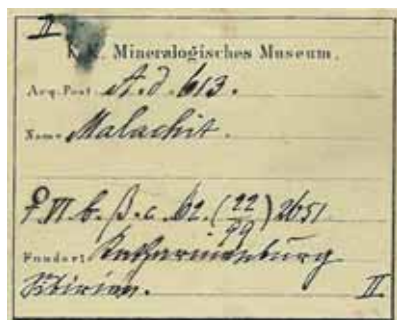 II
K. K. Mineralogisches Museum.
Acq. Post A. d. 613.
Name Malachit.
♀ VI b. β. c. 62. (22/99) 2651
Fundort: Katharinenburg
Sibirien. II